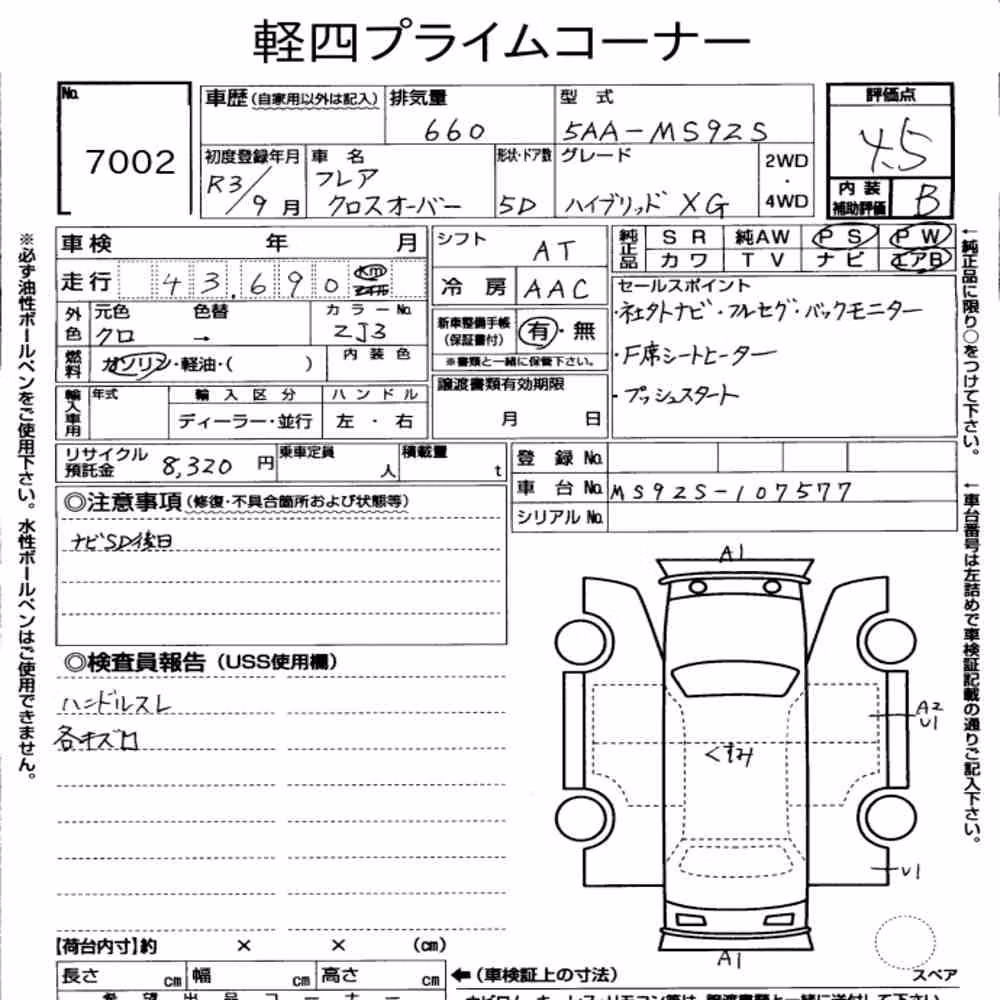 軽四プライムコーナー
No. 7002
車歴(自家用以外は記入) 排気量 660
型式 5AA-MS92S
評価点 4.5
内装補助評価 B
初度登録年月 R3/9月
車名 フレア クロスオーバー
形状・ドア数 5D
グレード ハイブリッド XG
2WD・4WD
車検 年 月
走行 43,690 Km マイル
外色 元色 クロ 色替 → カラーNo. ZJ3
燃料 ガソリン・軽油・( ) 内装色
輸入車用 年式 輸入区分 ディーラー・並行 ハンドル 左・右
シフト AT
冷房 AAC
新車整備手帳(保証書付) 有・無
※書類と一緒に保管下さい。
譲渡書類有効期限
月 日
純正品 SR 純AW PS PW
カワ TV ナビ エアB
セールスポイント
・社外ナビ・フルセグ・バックモニター
・F席シートヒーター
・プッシュスタート
リサイクル預託金 8,320円 乗車定員 人 積載量 t
登録No.
車台No. MS92S-107577
シリアルNo.
◎注意事項(修復・不具合箇所および状態等)
ナビSD後日
◎検査員報告(USS使用欄)
ハンドルスレ
各キズ
A1
A2
U1
くすみ
U1
A1
スペア
【荷台内寸】約 × × (cm)
長さ cm 幅 cm 高さ cm
←(車検証上の寸法)
希望出品コーナー
※必ず油性ボールペンをご使用下さい。水性ボールペンはご使用できません。
←純正品に限り○をつけて下さい。
←車台番号は左詰めで車検証記載の通りご記入下さい。